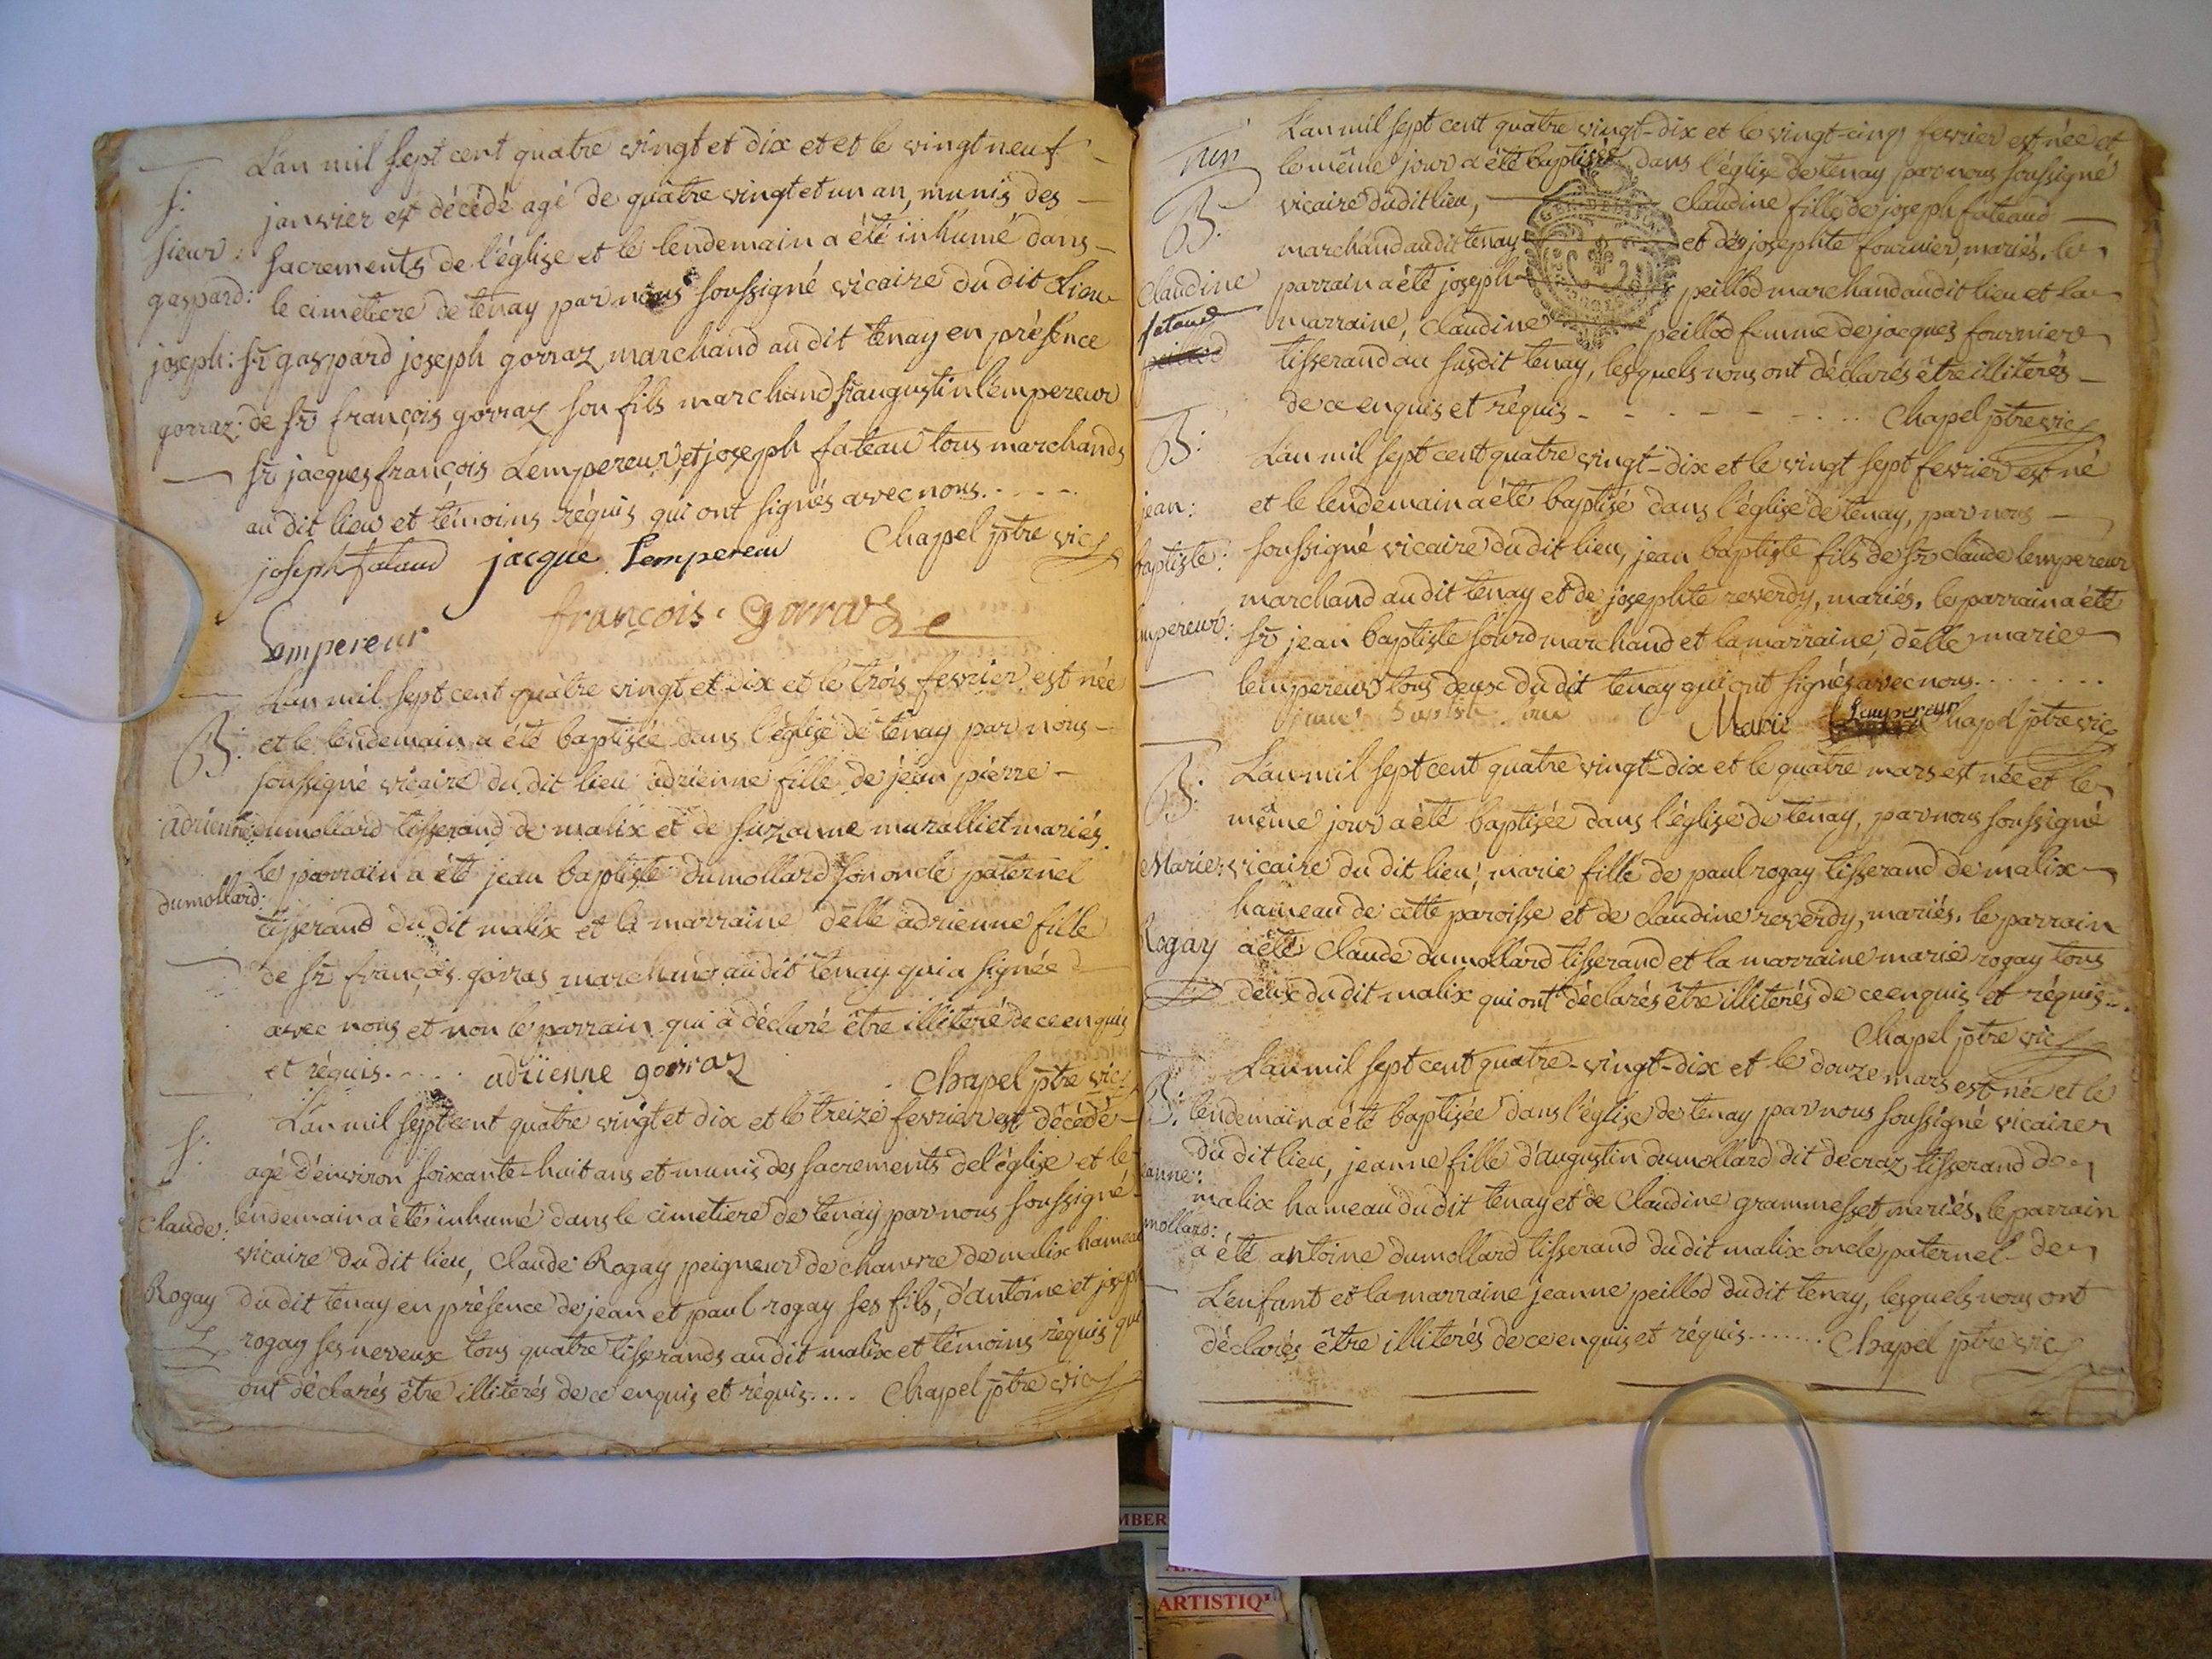 L'an mil sept cent quatre vingt et dix et et le vingt neuf
S:
janvier est décédé agé de quatre vingt et un an, munis des
sieur:
sacrements de l'église et le lendemain a été inhumé dans
gaspard:
le cimetiere de tenay par nous soussigné vicaire du dit Lieu
joseph:
sr gaspard joseph gorraz marchand au dit tenay en présence
gorraz:
de sr françois gorraz son fils marchand sr augustin l'empereur
sr jacques françois Lempereur, et joseph fateau tous marchands
au dit lieu et témoins réquis qui ont signés avec nous. - - - -
joseph fataud jacque Lempereur Chapel ptre vic
Lempereur françois. gorraz
L'an mil sept cent quatre vingt et dix et le trois fevrier est née
B:
et le lendemain a été baptisée dans l'église de tenay par nous
soussigné vicaire du dit lieu adrienne fille de jean pierre
adrienne
dumollard tisserand de malix et de suzanne muralliet mariés.
le parrain a été jean baptiste dumollard son oncle paternel
dumollard:
tisserand du dit malix et la marraine délle adrienne fille
de sr françois gorras marchand audit tenay qui a signée
avec nous et non le parrain qui a déclaré être illiteré de ce enquis
et réquis. . . . . adriienne gorraz Chapel ptre vic
L'an mil sept cent quatre vingt et dix et le treize fevrier est décédé
S:
agé d'environ soixante-huit ans et munis des sacrements de l'église et le
Claude:
lendemain a été inhumé dans le cimetiere de tenay par nous soussigné
vicaire du dit lieu, Claude Rogay peigneur de chanvre de malix hameau
Rogay
du dit tenay en présence de jean et paul rogay ses fils, d'antoine et joseph
rogay ses neveux tous quatre tisserands au dit malix et témoins réquis qui
ont déclarés être illiterés de ce enquis et réquis. . . . Chapel ptre vic
L'an mil sept cent quatre vingt-dix et le vingt-cinq fevrier est née et
le même jour a été baptisée dans l'église de tenay par nous soussigné
B:
vicaire du dit lieu, claudine fille de joseph fateaud
marchand audit tenay et de josephte fournier, mariés. le
Claudine
parrain a été joseph peillod marchand audit lieu et la
fataud
marraine, Claudine peillod femme de jacques fournier
peillod
tisserand au susdit tenay, lesquels nous ont déclarés être illiterés
de ce enquis et réquis - - - - - - . . . . Chapel ptre vic
B:
L'an mil sept cent quatre vingt-dix et le vingt sept fevrier est né
jean:
et le lendemain a été baptisé dans l'église de tenay, par nous
baptiste:
soussigné vicaire du dit lieu, jean baptiste fils de sr claude lempereur
marchand au dit tenay et de josephte reverdy, mariés. le parrain a été
mpereur:
sr jean baptiste sourd marchand et la marraine, délle marie
lempereur tous deux du dit tenay qui ont signés avec nous. . . . . . . .
Marie Lempereur Chapel ptre vic
L'an mil sept cent quatre vingt-dix et le quatre mars est née et le
B:
même jour a été baptisée dans l'église de tenay, par nous soussigné
Marie:
vicaire du dit lieu, marie fille de paul rogay tisserand de malix
hameau de cette paroisse et de claudine reverdy, mariés. le parrain
Rogay
a été Claude dumollard tisserand et la marraine marie rogay tous
deux du dit malix qui ont déclarés être illiterés de ce enquis et réquis. . .
Chapel ptre vic
L'an mil sept cent quatre-vingt-dix et le douze mars est née et le
B:
lendemain a été baptisée dans l'église de tenay par nous soussigné vicaire
du dit lieu, jeanne fille d'augustin dumollard dit decraz tisserand de
eanne:
malix hameau du dit tenay et de Claudine grammesset mariés. le parrain
mollard:
a été antoine dumollard tisserand du dit malix oncle paternel de
L'enfant et la marraine jeanne peillod du dit tenay, lesquels nous ont
déclarés être illiterés de ce enquis et réquis. . . . . . . Chapel ptre vic
MBER
ARTISTIQ